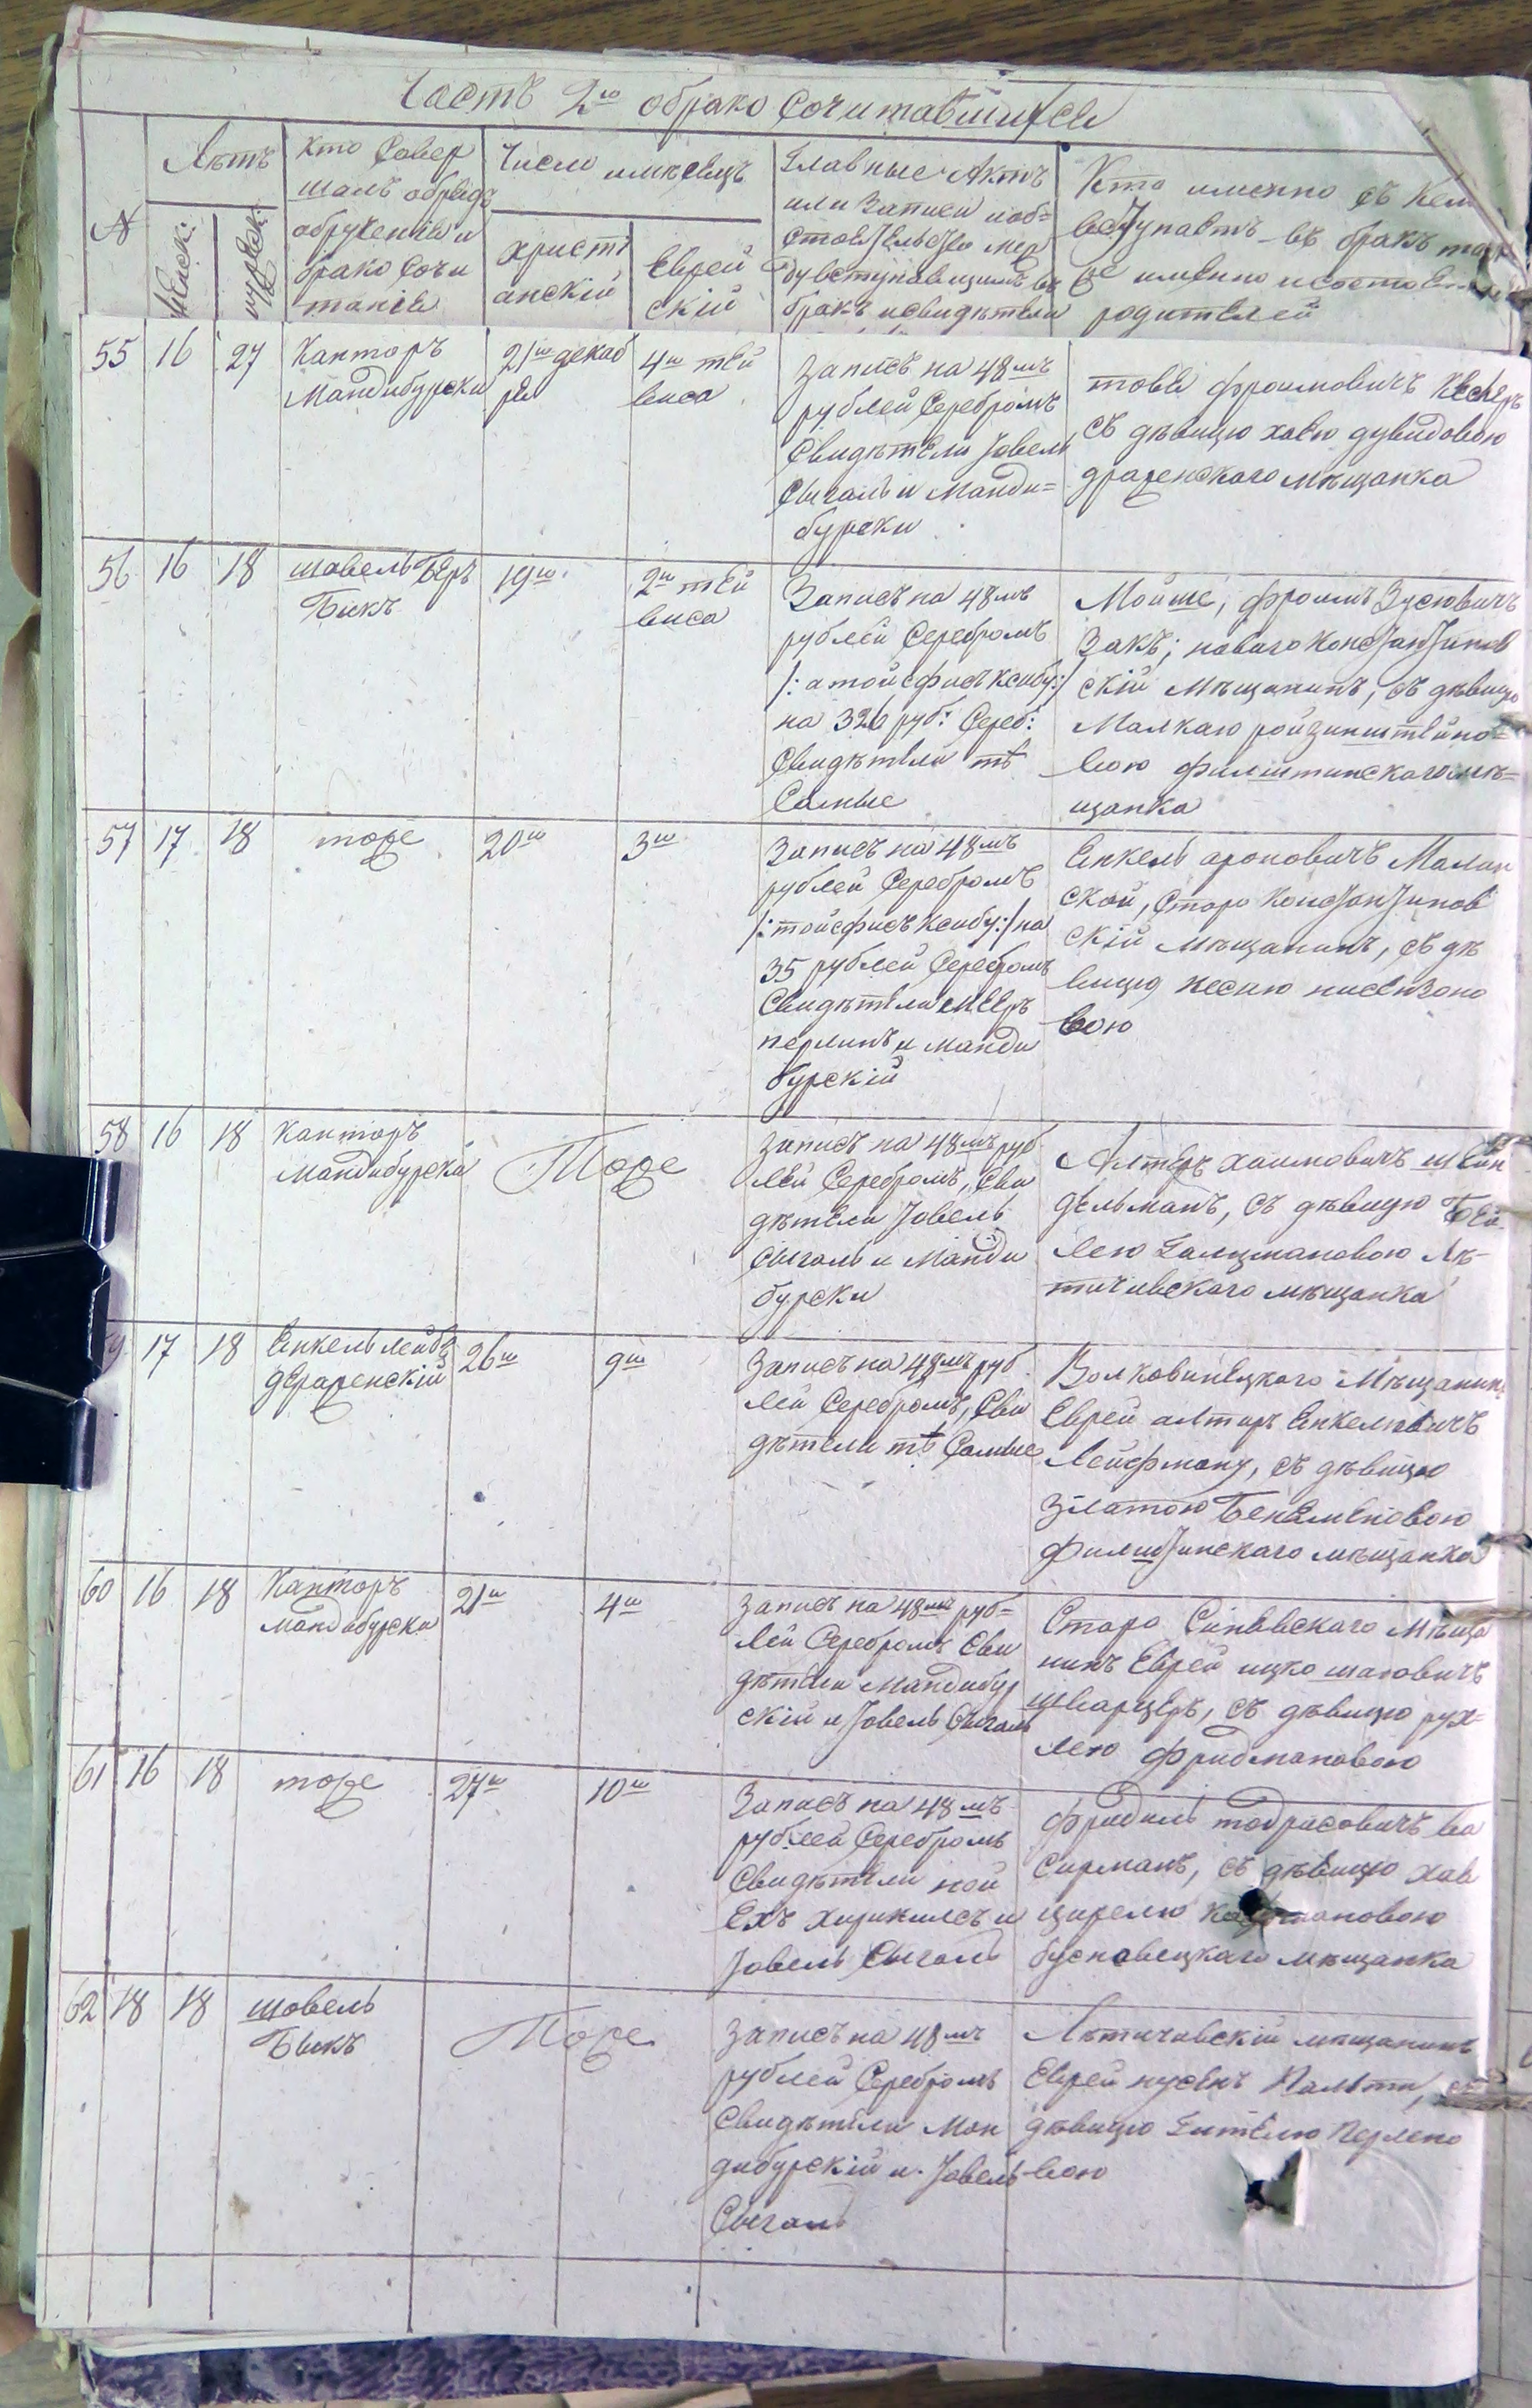 Часть 2ю обрако сочитавшихся
№
Лѣтъ
Женск:
мужеск:
Кто Совер
шалъ обрядъ
обрученія и
брако Сочи
танія
Число имѣсяцъ
христі
анскій
Еврей
скій
Главные Актъ
или Записи иоб=
стоятельство меж
ду вступающимъ въ
бракъ исвидѣтели
Кто именно съ кем
вступаетъ въ бракъ так
же именно исостоя
родителей
55
16
27
Канторъ
Мандибурски
21го декаб
ря
4го тей
виса
Запись на 48мъ
рублей Серебромъ
Свидѣтели Іовель
Сыгаль и Манди=
бурски
товія Фроимовичъ
съ дѣвицю хавю дувидовою
драженского мѣщанка
56
16
18
шовель Беръ
Бикъ
19го
2го тей
виса
Запись на 48мъ
рублей Серебромъ
/: а тойсфисъ ксибу:/
на 326 руб: Сереб:
Свидѣтели тѣ
Самые
Мойше, Фроимъ Зусювичъ
Закъ; новаго Константинов
скій Мѣщанинъ, съ дѣвицю
Малкаю ройзинштейно=
вою филштинскагомѣ=
щанка
57
17
18
тоже
20го
3го
Запись на 48мъ
рублей Серебромъ
/: тойсфисъ ксибу:/ на
35 рублей Серебромъ
Свидѣтели Мееръ
перлинъ и манди
бурскій
Енкель ароновичъ Малин
ской, Старо Константинов
скій мѣщанинъ, съ дѣ
вицю несию нисензоно
вою
58
16
18
Канторъ
мандибурски
Тоже
Запись на 48мъ руб
лей Серебромъ, Сви
дѣтели Іовель
Сыгаль и Манди
бурски
Алтеръ хаимовичъ шейн
дельманъ, съ дѣвицю Бей
лею Галцмановою Лѣ-
тичивского мѣщанка
17
18
Енкель лейбъ
дераженскій
26го
9го
Запись на 48мъ руб
лей Серебромъ, Сви
дѣтели тѣ Самые
Волковинецкого Мѣщанинъ
Еврей алтиръ Енкелювичъ
Лейфману, съ дѣвицю
Златою Бенеменовою
филштинскаго мѣщанка
60
16
18
Канторъ
мандибурски
21го
4го
Запись на 48мъ руб=
лей Серебромъ Сви
дѣтели Мандибур
скій и Іовель Сыгаль
Старо Синявского Мѣща
нинъ Еврей ицко шаговичъ
шварцеръ, съ дѣвицю рух=
лею Фридмановою
61
16
18
тоже
27го
10го
Запись на 48мъ
рублей Серебромъ
Свидѣтели ной
Ехъ хирикисъ и
Іовель Сыгаль
Фридель тодрисовичъ ва
сирманъ, съ дѣвицю хав
цирелю
бусновецкаго мѣщанка
62
18
18
шовель
Быкъ
Тоже
Запись на 48мъ
рублей Серебромъ
Свидѣтели Ман
дибурскій и Іовель
Сыгаль
Лѣтичивскій мѣщанинъ
Еврей нусенъ Палыти, съ
дѣвицю Гителю Перлено
вою